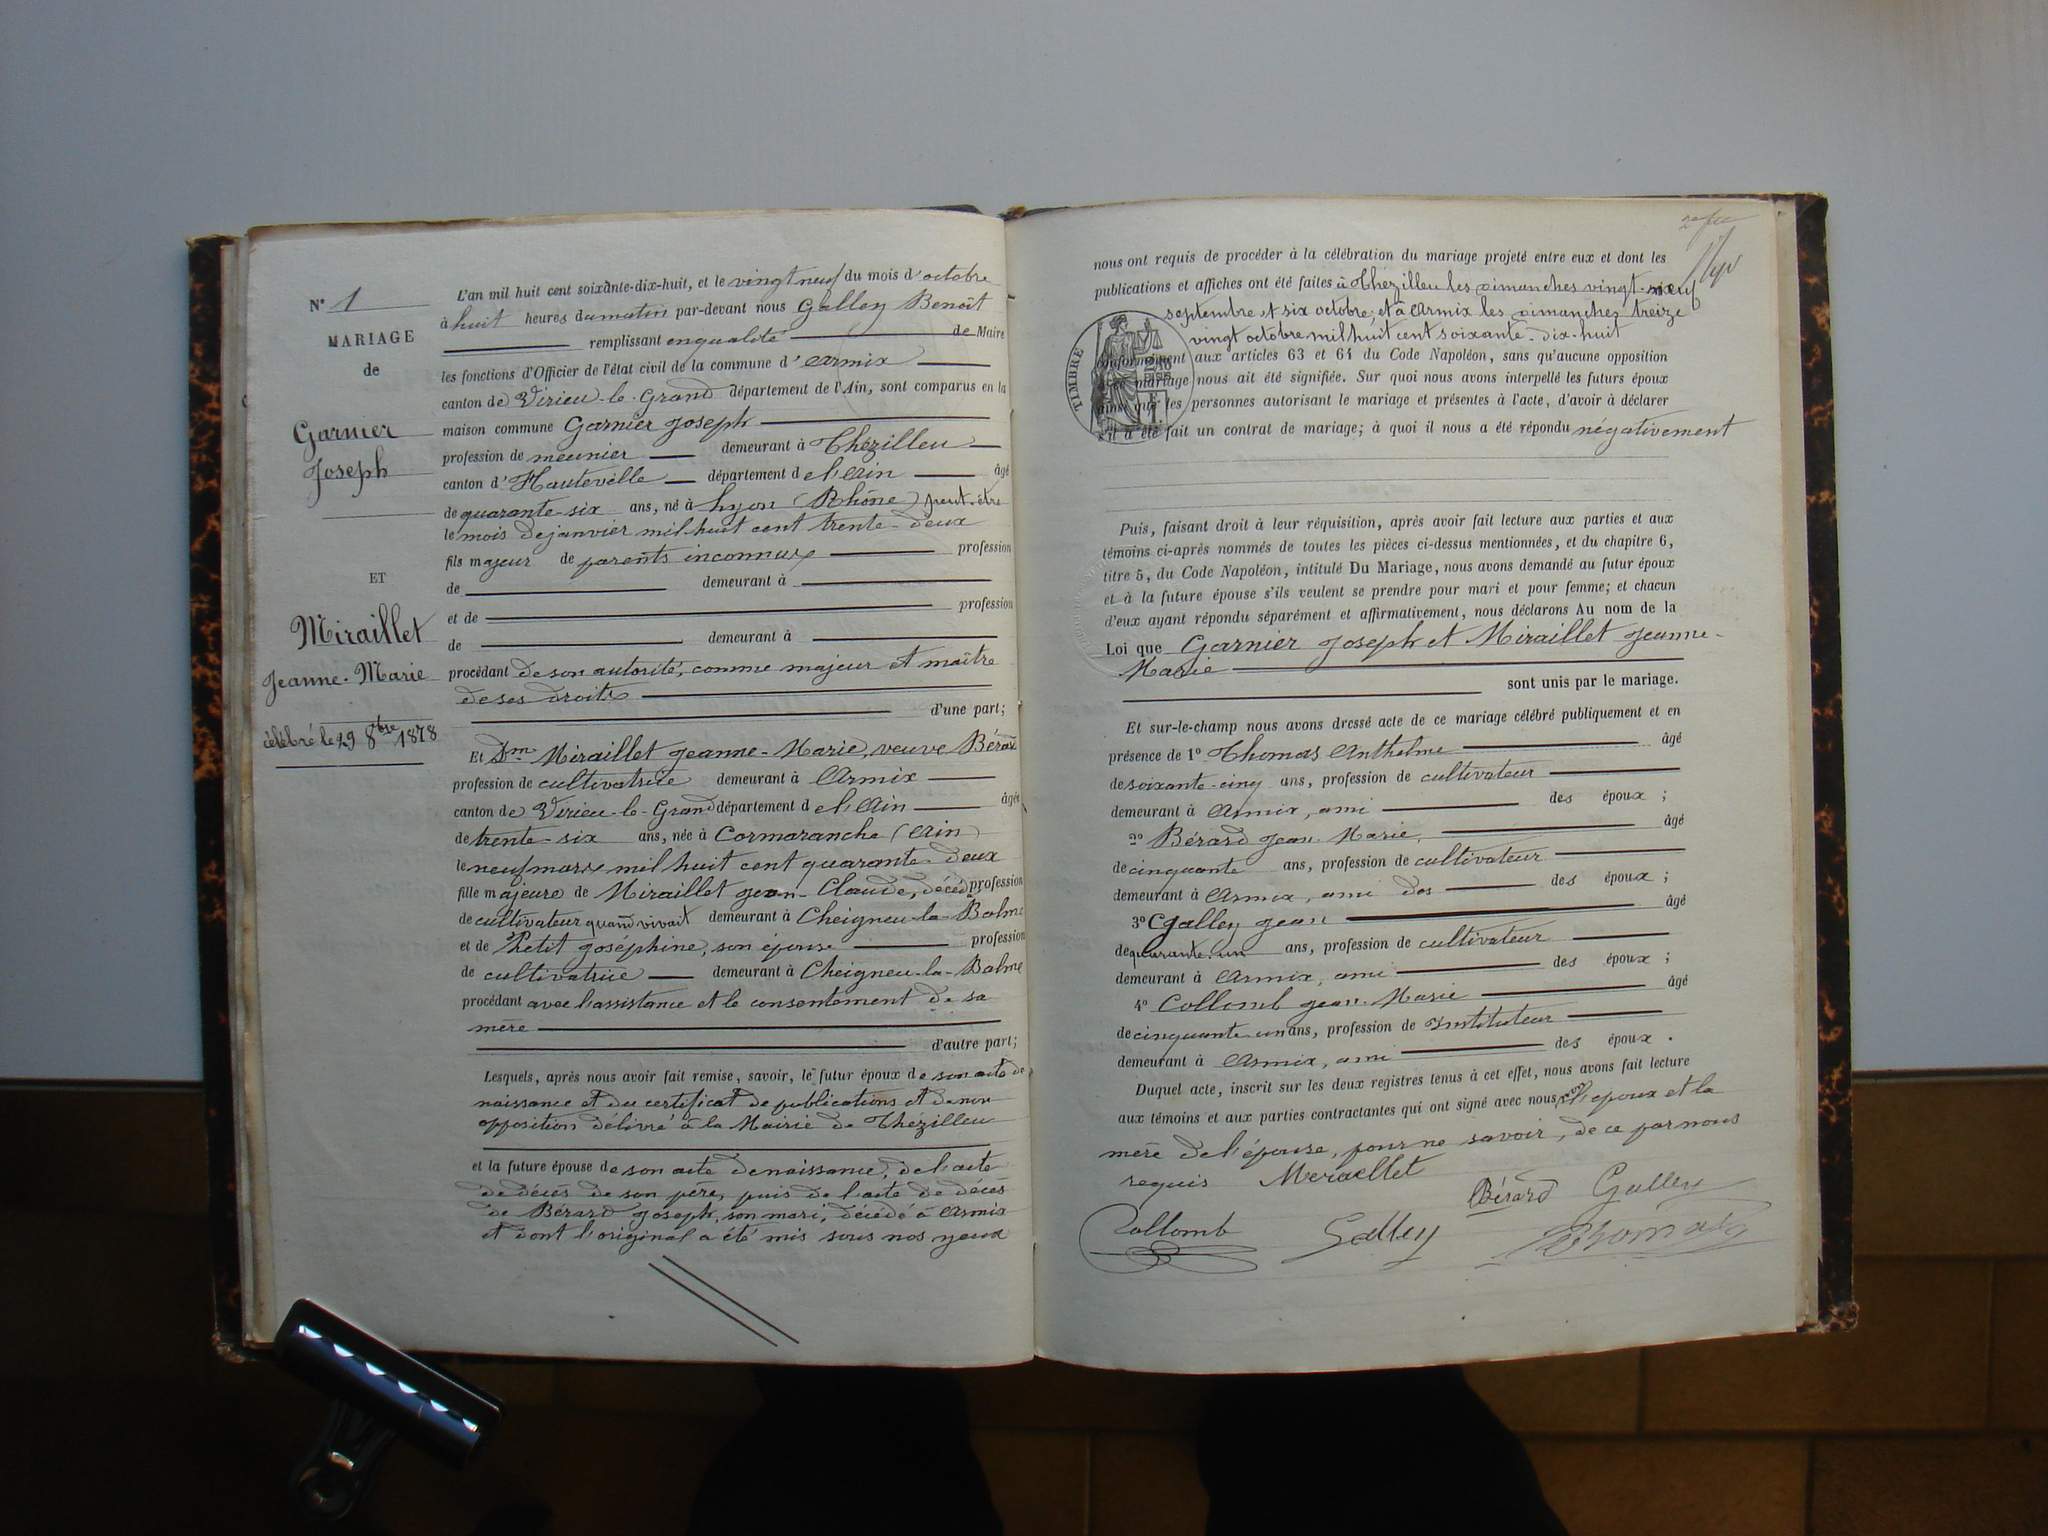 N° 1
MARIAGE
de
Garnier
Joseph
ET
Miraillet
Jeanne-Marie
célébré le 29 8bre 1878
L'an mil huit cent soixante-dix-huit, et le vingt neuf du mois d'octobre
à huit heures du matin par-devant nous Galley Benoît
remplissant en qualité de Maire
les fonctions d'Officier de l'état civil de la commune d'Armix
canton de Virieu-le-Grand département de l'Ain, sont comparus en la
maison commune Garnier Joseph
profession de meunier demeurant à Thézilleu
canton d'Hauteville département de l'Ain âgé
de quarante-six ans, né à Lyon (Rhône) peut-être
le mois de janvier mil huit cent trente-deux
fils majeur de parents inconnus profession
de demeurant à
et de profession
de demeurant à
procédant de son autorité, comme majeur et maître
de ses droits
d'une part;
Et Dme Miraillet Jeanne-Marie, veuve Bérard
profession de cultivatrice demeurant à Armix
canton de Virieu-le-Grand département de l'Ain âgée
de trente-six ans, née à Cormaranche (Ain)
le neuf mars mil huit cent quarante-deux
fille majeure de Miraillet Jean-Claude, décédé profession
de cultivateur quand vivait demeurant à Cheigneu-la-Balme
et de Petit Joséphine, son épouse profession
de cultivatrice demeurant à Cheigneu-la-Balme
procédant avec l'assistance et le consentement de sa
mère
d'autre part;
Lesquels, après nous avoir fait remise, savoir, le futur époux de son acte de
naissance et du certificat de publications et de non
opposition délivré à la Mairie de Thézilleu
et la future épouse de son acte de naissance, de l'acte
de décès de son père, puis de l'acte de décès
de Bérard Joseph, son mari, décédé à Armix
et dont l'original a été mis sous nos yeux
nous ont requis de procéder à la célébration du mariage projeté entre eux et dont les
publications et affiches ont été faites à Thézilleu les dimanches vingt-neuf
septembre et six octobre, et à Armix les dimanches treize
vingt octobre mil huit cent soixante-dix-huit
TIMBRE
conformément aux articles 63 et 64 du Code Napoléon, sans qu'aucune opposition
mariage nous ait été signifiée. Sur quoi nous avons interpellé les futurs époux
ainsi que les personnes autorisant le mariage et présentes à l'acte, d'avoir à déclarer
s'il a été fait un contrat de mariage; à quoi il nous a été répondu négativement
Puis, faisant droit à leur réquisition, après avoir fait lecture aux parties et aux
témoins ci-après nommés de toutes les pièces ci-dessus mentionnées, et du chapitre 6,
titre 5, du Code Napoléon, intitulé Du Mariage, nous avons demandé au futur époux
et à la future épouse s'ils veulent se prendre pour mari et pour femme; et chacun
d'eux ayant répondu séparément et affirmativement, nous déclarons Au nom de la
Loi que Garnier Joseph et Miraillet Jeanne-
Marie
sont unis par le mariage.
Et sur-le-champ nous avons dressé acte de ce mariage célébré publiquement et en
présence de 1° Thomas Anthelme âgé
de soixante-cinq ans, profession de cultivateur
demeurant à Armix, ami des époux;
2° Bérard Jean-Marie, âgé
de cinquante ans, profession de cultivateur
demeurant à Armix, ami des des époux;
3° Galley Jean âgé
de quarante-un ans, profession de cultivateur
demeurant à Armix, ami des époux;
4° Collomb Jean-Marie âgé
de cinquante un ans, profession de Instituteur
demeurant à Armix, ami des époux.
Duquel acte, inscrit sur les deux registres tenus à cet effet, nous avons fait lecture
aux témoins et aux parties contractantes qui ont signé avec nous, l'époux et la
mère de l'épouse, pour ne savoir, de ce par nous
requis Meraellet
Bérard Galley
Collomb Galley Thomas